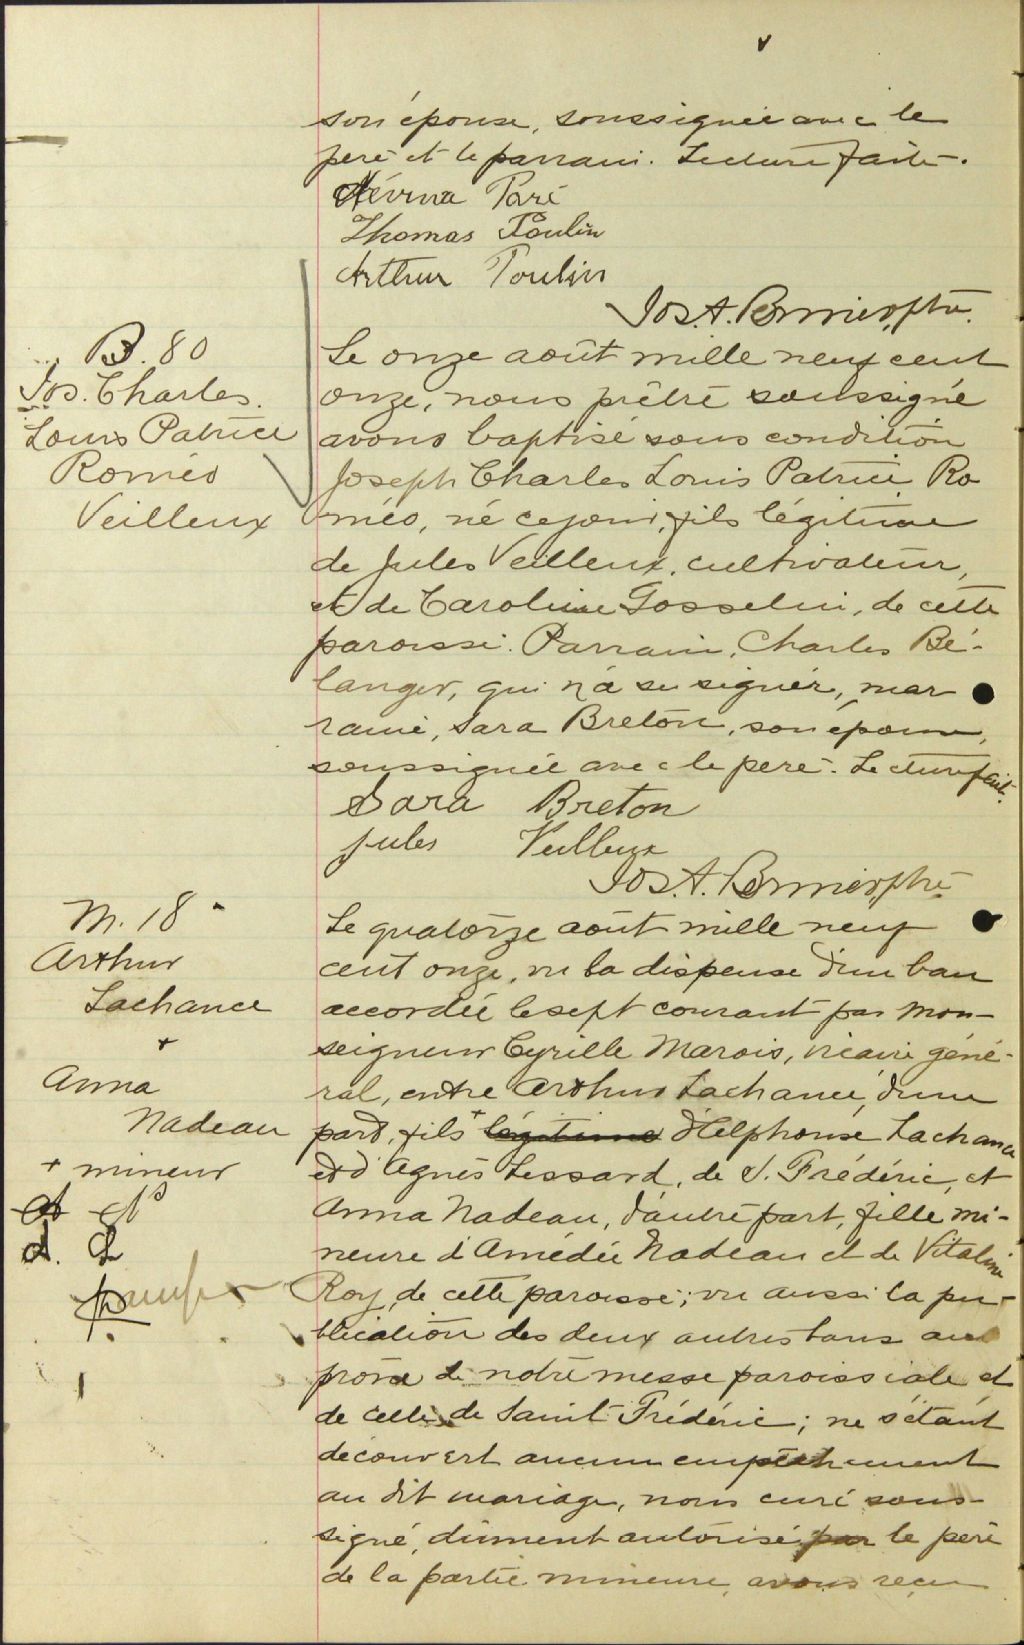 son épouse, soussignée avec le
père et le parrain. Lecture faite.
Névina Paré
Thomas Poulin
Arthur Poulin
Jos. A. Bernier, ptre.
B. 80
Jos. Charles
Louis Patrice
Roméo
Veilleux
Le onze août mille neuf cent
onze, nous prêtre soussigné
avons baptisé sous condition
Joseph Charles Louis Patrice Ro
méo, né ce jour, fils légitime
de Jules Veilleux, cultivateur,
et de Caroline Gosselin, de cette
paroisse. Parrain, Charles Bé-
langer, qui n'a su signer, mar
raine, Sara Breton, son épouse,
soussignée avec le père. Lecture faite.
Sara Breton
Jules Veilleux
Jos. A. Bernier, ptre
M. 18
Arthur
Lachance
+
Anna
Nadeau
+ mineur
Le quatorze août mille neuf
cent onze, vu la dispense d'un ban
accordée le sept courant par Mon-
seigneur Cyrille Marois, vicaire géné-
ral, entre Arthur Lachance, d'une
part, fils + légitime d'Elphonse Lachance
et d'Agnès Lessard, de S. Frédéric, et
Anna Nadeau, d'autre part, fille mi-
neure d'Amédée Nadeau et de Vitaline
Roy, de cette paroisse; vu aussi la pu-
blication des deux autres bans au
prône de notre messe paroissiale et
de celle de Saint Frédéric; ne s'étant
découvert aucun empêchement
au dit mariage, nous curé sous-
signé, dûment autorisé par le père
de la partie mineure, avons reçu